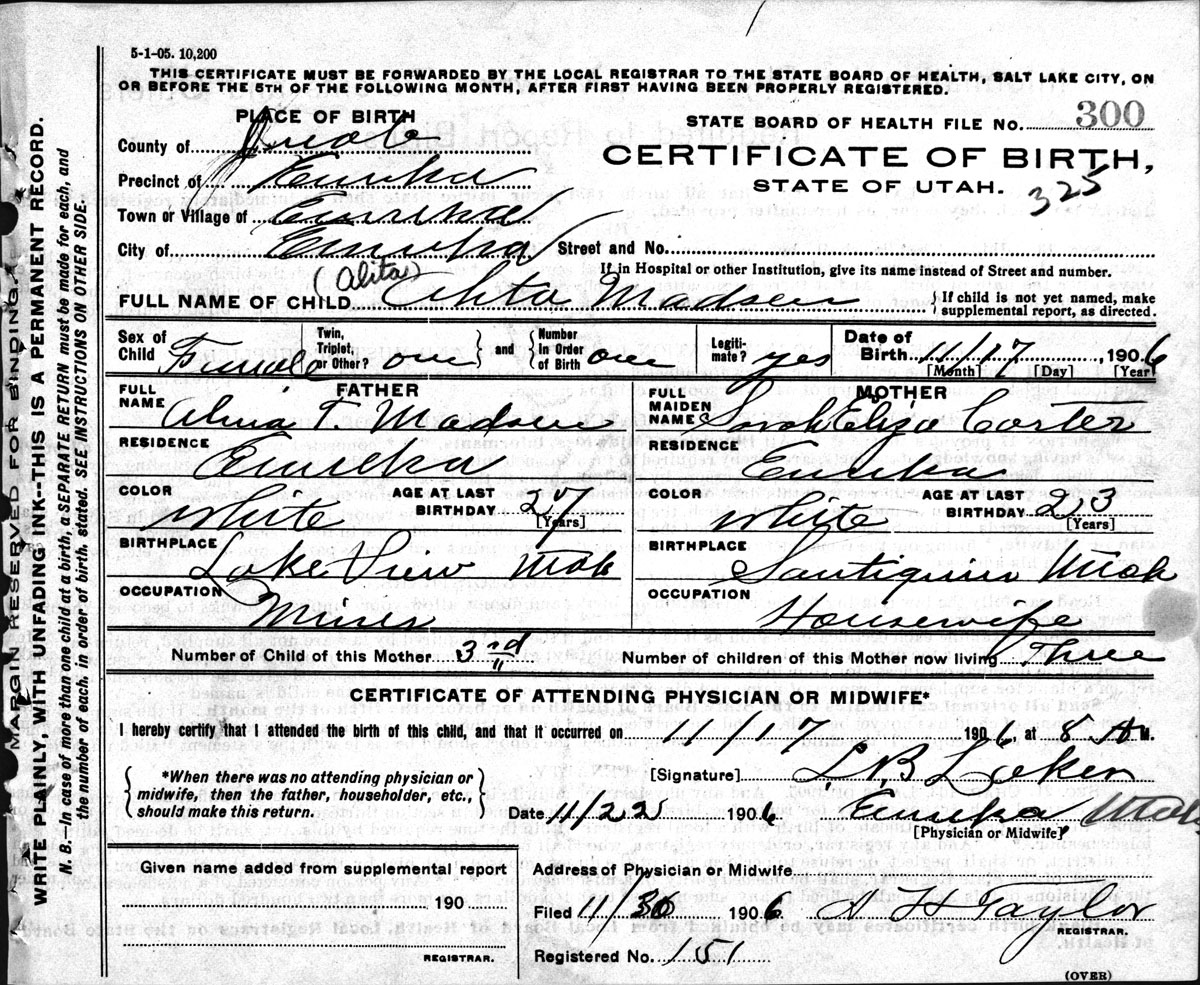 5-1-05. 10,200
THIS CERTIFICATE MUST BE FORWARDED BY THE LOCAL REGISTRAR TO THE STATE BOARD OF HEALTH, SALT LAKE CITY, ON
OR BEFORE THE 5TH OF THE FOLLOWING MONTH, AFTER FIRST HAVING BEEN PROPERLY REGISTERED.
MARGIN RESERVED FOR BINDING
WRITE PLAINLY WITH UNFADING INK--THIS IS A PERMANENT RECORD.
N. B.--In case of more than one child at a birth, a SEPARATE RETURN must be made for each, and
the number of each, in order of birth, stated. SEE INSTRUCTIONS ON OTHER SIDE.
PLACE OF BIRTH
STATE BOARD OF HEALTH FILE NO. 300
County of Juab
CERTIFICATE OF BIRTH,
Precinct of Eureka
STATE OF UTAH.
325
Town or Village of Eureka
City of Eureka Street and No.
If in Hospital or other Institution, give its name instead of Street and number.
(Alita)
FULL NAME OF CHILD Alita Madsen
If child is not yet named, make
supplemental report, as directed.
Sex of Child Female Twin, Triplet, or Other? one and Number In Order of Birth one Legitimate? yes Date of Birth 11/17, 1906
[Month] [Day] [Year]
FATHER
FULL NAME Alma F. Madsen
RESIDENCE Eureka
COLOR White AGE AT LAST BIRTHDAY 27
[Years]
BIRTHPLACE Lake View Utah
OCCUPATION Miner
MOTHER
FULL MAIDEN NAME Sarah Eliza Carter
RESIDENCE Eureka
COLOR White AGE AT LAST BIRTHDAY 23
[Years]
BIRTHPLACE Santiquin Utah
OCCUPATION Housewife
Number of Child of this Mother 3rd Number of children of this Mother now living Three
CERTIFICATE OF ATTENDING PHYSICIAN OR MIDWIFE*
I hereby certify that I attended the birth of this child, and that it occurred on 11/17 1906, at 8 A M.
*When there was no attending physician or
midwife, then the father, householder, etc.,
should make this return.
[Signature] L B Laker
Date 11/22 1906 Eureka Utah
[Physician or Midwife]
Given name added from supplemental report
190
REGISTRAR.
Address of Physician or Midwife
Filed 11/30 1906 A H Taylor
REGISTRAR.
Registered No. 151
(OVER)